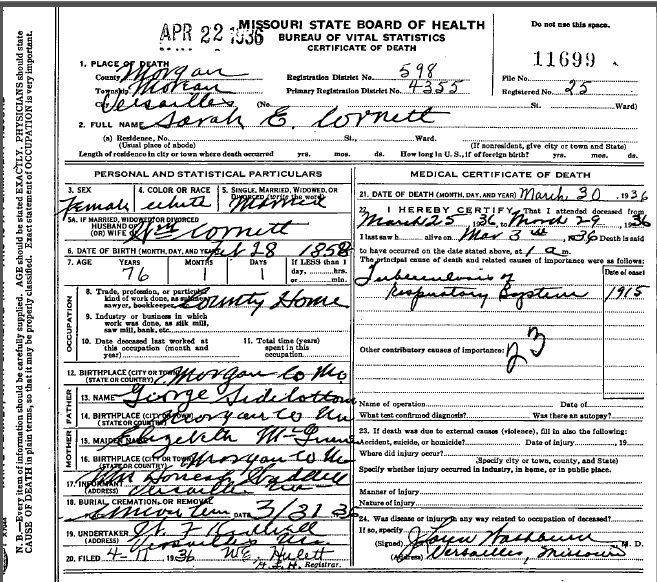 APR 22 1936
MISSOURI STATE BOARD OF HEALTH
BUREAU OF VITAL STATISTICS
CERTIFICATE OF DEATH
Do not use this space.
11699
1. PLACE OF DEATH
County Morgan
Registration District No. 598
File No.
Township Moreau
Primary Registration District No. 4355
Registered No. 25
City Versailles (No. St. Ward)
2. FULL NAME Sarah E. Cornett
(a) Residence, No. St., Ward.
(Usual place of abode) (If nonresident, give city or town and State)
Length of residence in city or town where death occurred yrs. mos. ds. How long in U. S., if of foreign birth? yrs. mos. ds.
PERSONAL AND STATISTICAL PARTICULARS
3. SEX 4. COLOR OR RACE 5. SINGLE, MARRIED, WIDOWED, OR DIVORCED (write the word)
Female white Married
5A. IF MARRIED, WIDOWED, OR DIVORCED
HUSBAND OF
(OR) WIFE OF Wm Cornett
6. DATE OF BIRTH (MONTH, DAY, AND YEAR) 28 1858
7. AGE YEARS MONTHS DAYS If LESS than 1
76 1 1 day, hrs.
or min.
OCCUPATION
8. Trade, profession, or particular
kind of work done, as
sawyer, bookkeeper, County Home
9. Industry or business in which
work was done, as silk mill,
saw mill, bank, etc.
10. Date deceased last worked at
this occupation (month and
year)
11. Total time (years)
spent in this
occupation
12. BIRTHPLACE (CITY OR TOWN) Morgan Co Mo
(STATE OR COUNTRY)
FATHER
13. NAME George
14. BIRTHPLACE (CITY OR TOWN) Morgan Co
(STATE OR COUNTRY)
MOTHER
15. MAIDEN NAME Elizabeth
16. BIRTHPLACE (CITY OR TOWN) Morgan Co
(STATE OR COUNTRY)
17. INFORMANT
(ADDRESS) Versailles
18. BURIAL, CREMATION, OR REMOVAL
DATE 3/31 36
19. UNDERTAKER W. F.
(ADDRESS) Versailles
20. FILED 4-11 1936 Registrar.
MEDICAL CERTIFICATE OF DEATH
21. DATE OF DEATH (MONTH, DAY, AND YEAR) March 30, 1936
22. I HEREBY CERTIFY, That I attended deceased from
March 25, 1936, to March 29, 1936
I last saw h alive on Mar 1936 Death is said
to have occurred on the date stated above, at 1 a m.
The principal cause of death and related causes of importance were as follows:
Date of onset
Tuberculosis of
Respiratory System 1915
23
Other contributory causes of importance:
Name of operation Date of
What test confirmed diagnosis? Was there an autopsy?
23. If death was due to external causes (violence), fill in also the following:
Accident, suicide, or homicide? Date of injury 19
Where did injury occur?
(Specify city or town, county, and State)
Specify whether injury occurred in industry, in home, or in public place.
Manner of injury
Nature of injury
24. Was disease or injury in any way related to occupation of deceased?
If so, specify
(Signed) Washburn M. D.
(Address) Versailles, Missouri
N. B.—Every item of information should be carefully supplied. AGE should be stated EXACTLY. PHYSICIANS should state
CAUSE OF DEATH in plain terms, so that it may be properly classified. Exact statement of OCCUPATION is very important.